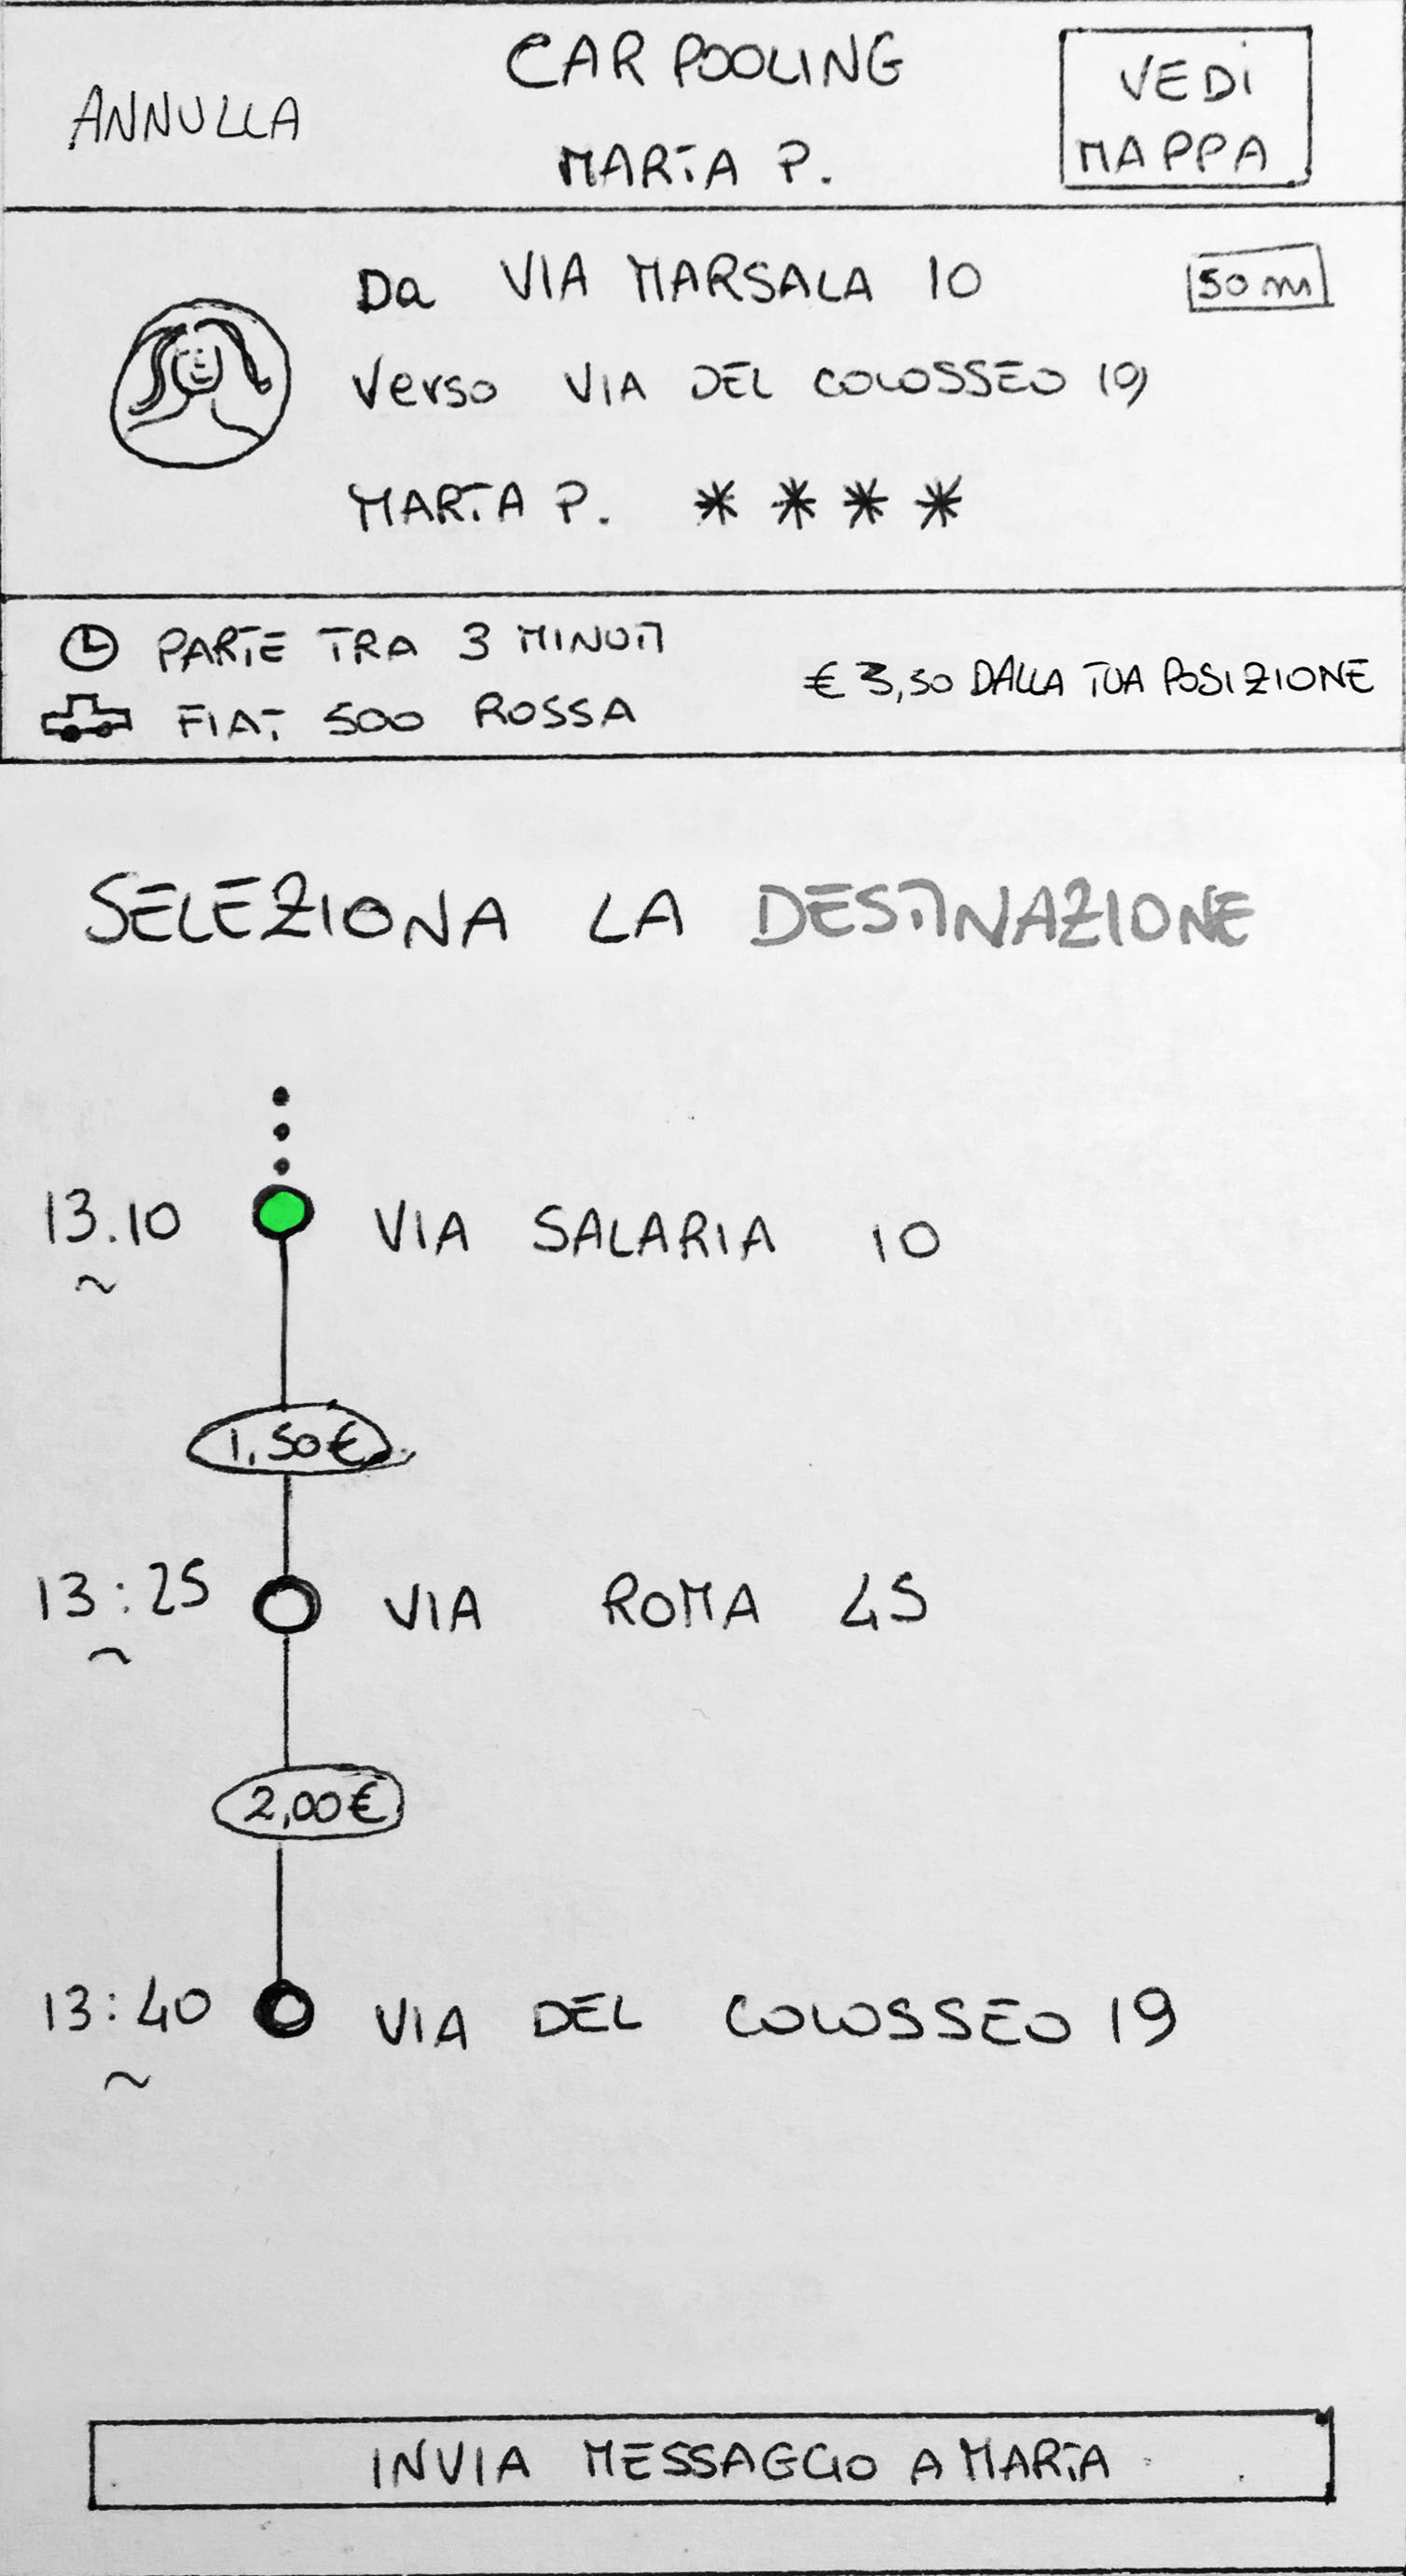 ANNULLA
CAR POOLING
MARTA P.
VEDI
MAPPA
Da VIA MARSALA 10
50 m
Verso VIA DEL COLOSSEO 19
MARTA P. * * * *
PARTE TRA 3 MINUTI
FIAT 500 ROSSA
€ 3,50 DALLA TUA POSIZIONE
SELEZIONA LA DESTINAZIONE
13.10 VIA SALARIA 10
~
1,50€
13:25 VIA ROMA 45
~
2,00€
13:40 VIA DEL COLOSSEO 19
~
INVIA MESSAGGIO A MARTA